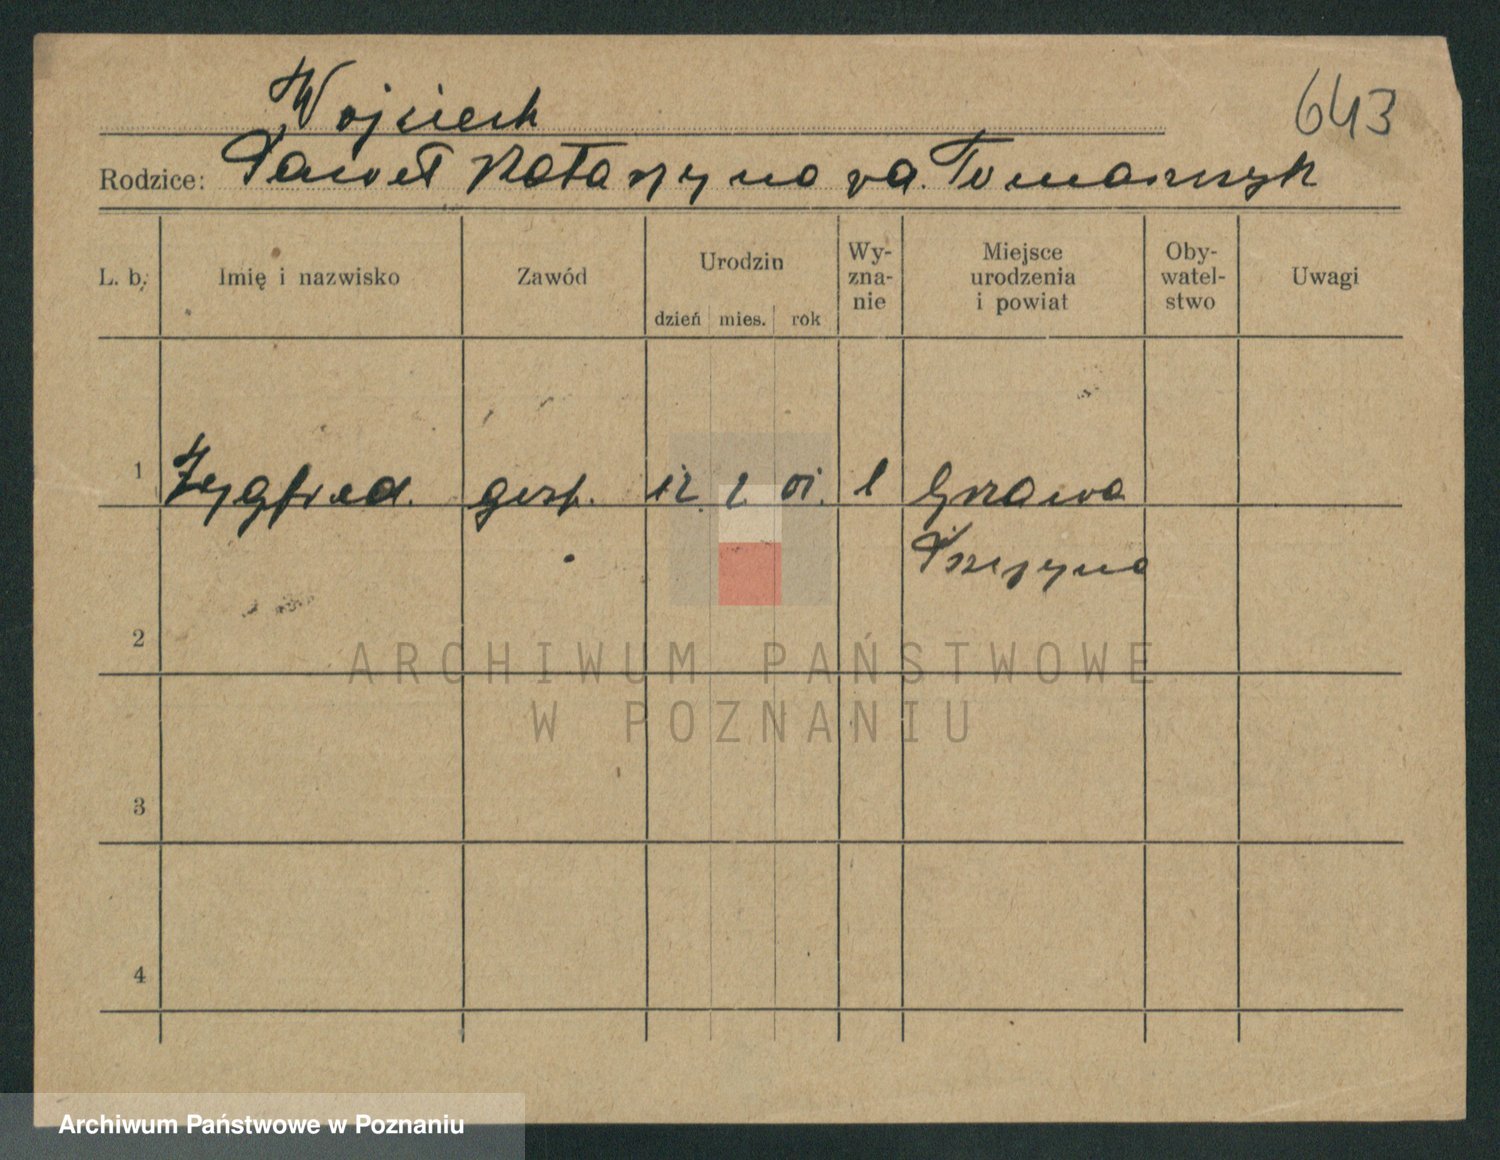 Wojciech
643
Rodzice: Paweł Katarzyna va. Tomaszczyk
L. b. Imię i nazwisko Zawód Urodzin dzień mies. rok Wy-zna-nie Miejsce urodzenia i powiat Oby-watel-stwo Uwagi
1 Zygfried. gosp. 12. 2 01. Gzawa
2
ARCHIWUM PAŃSTWOWE
W POZNANIU
3
4
Archiwum Państwowe w Poznaniu